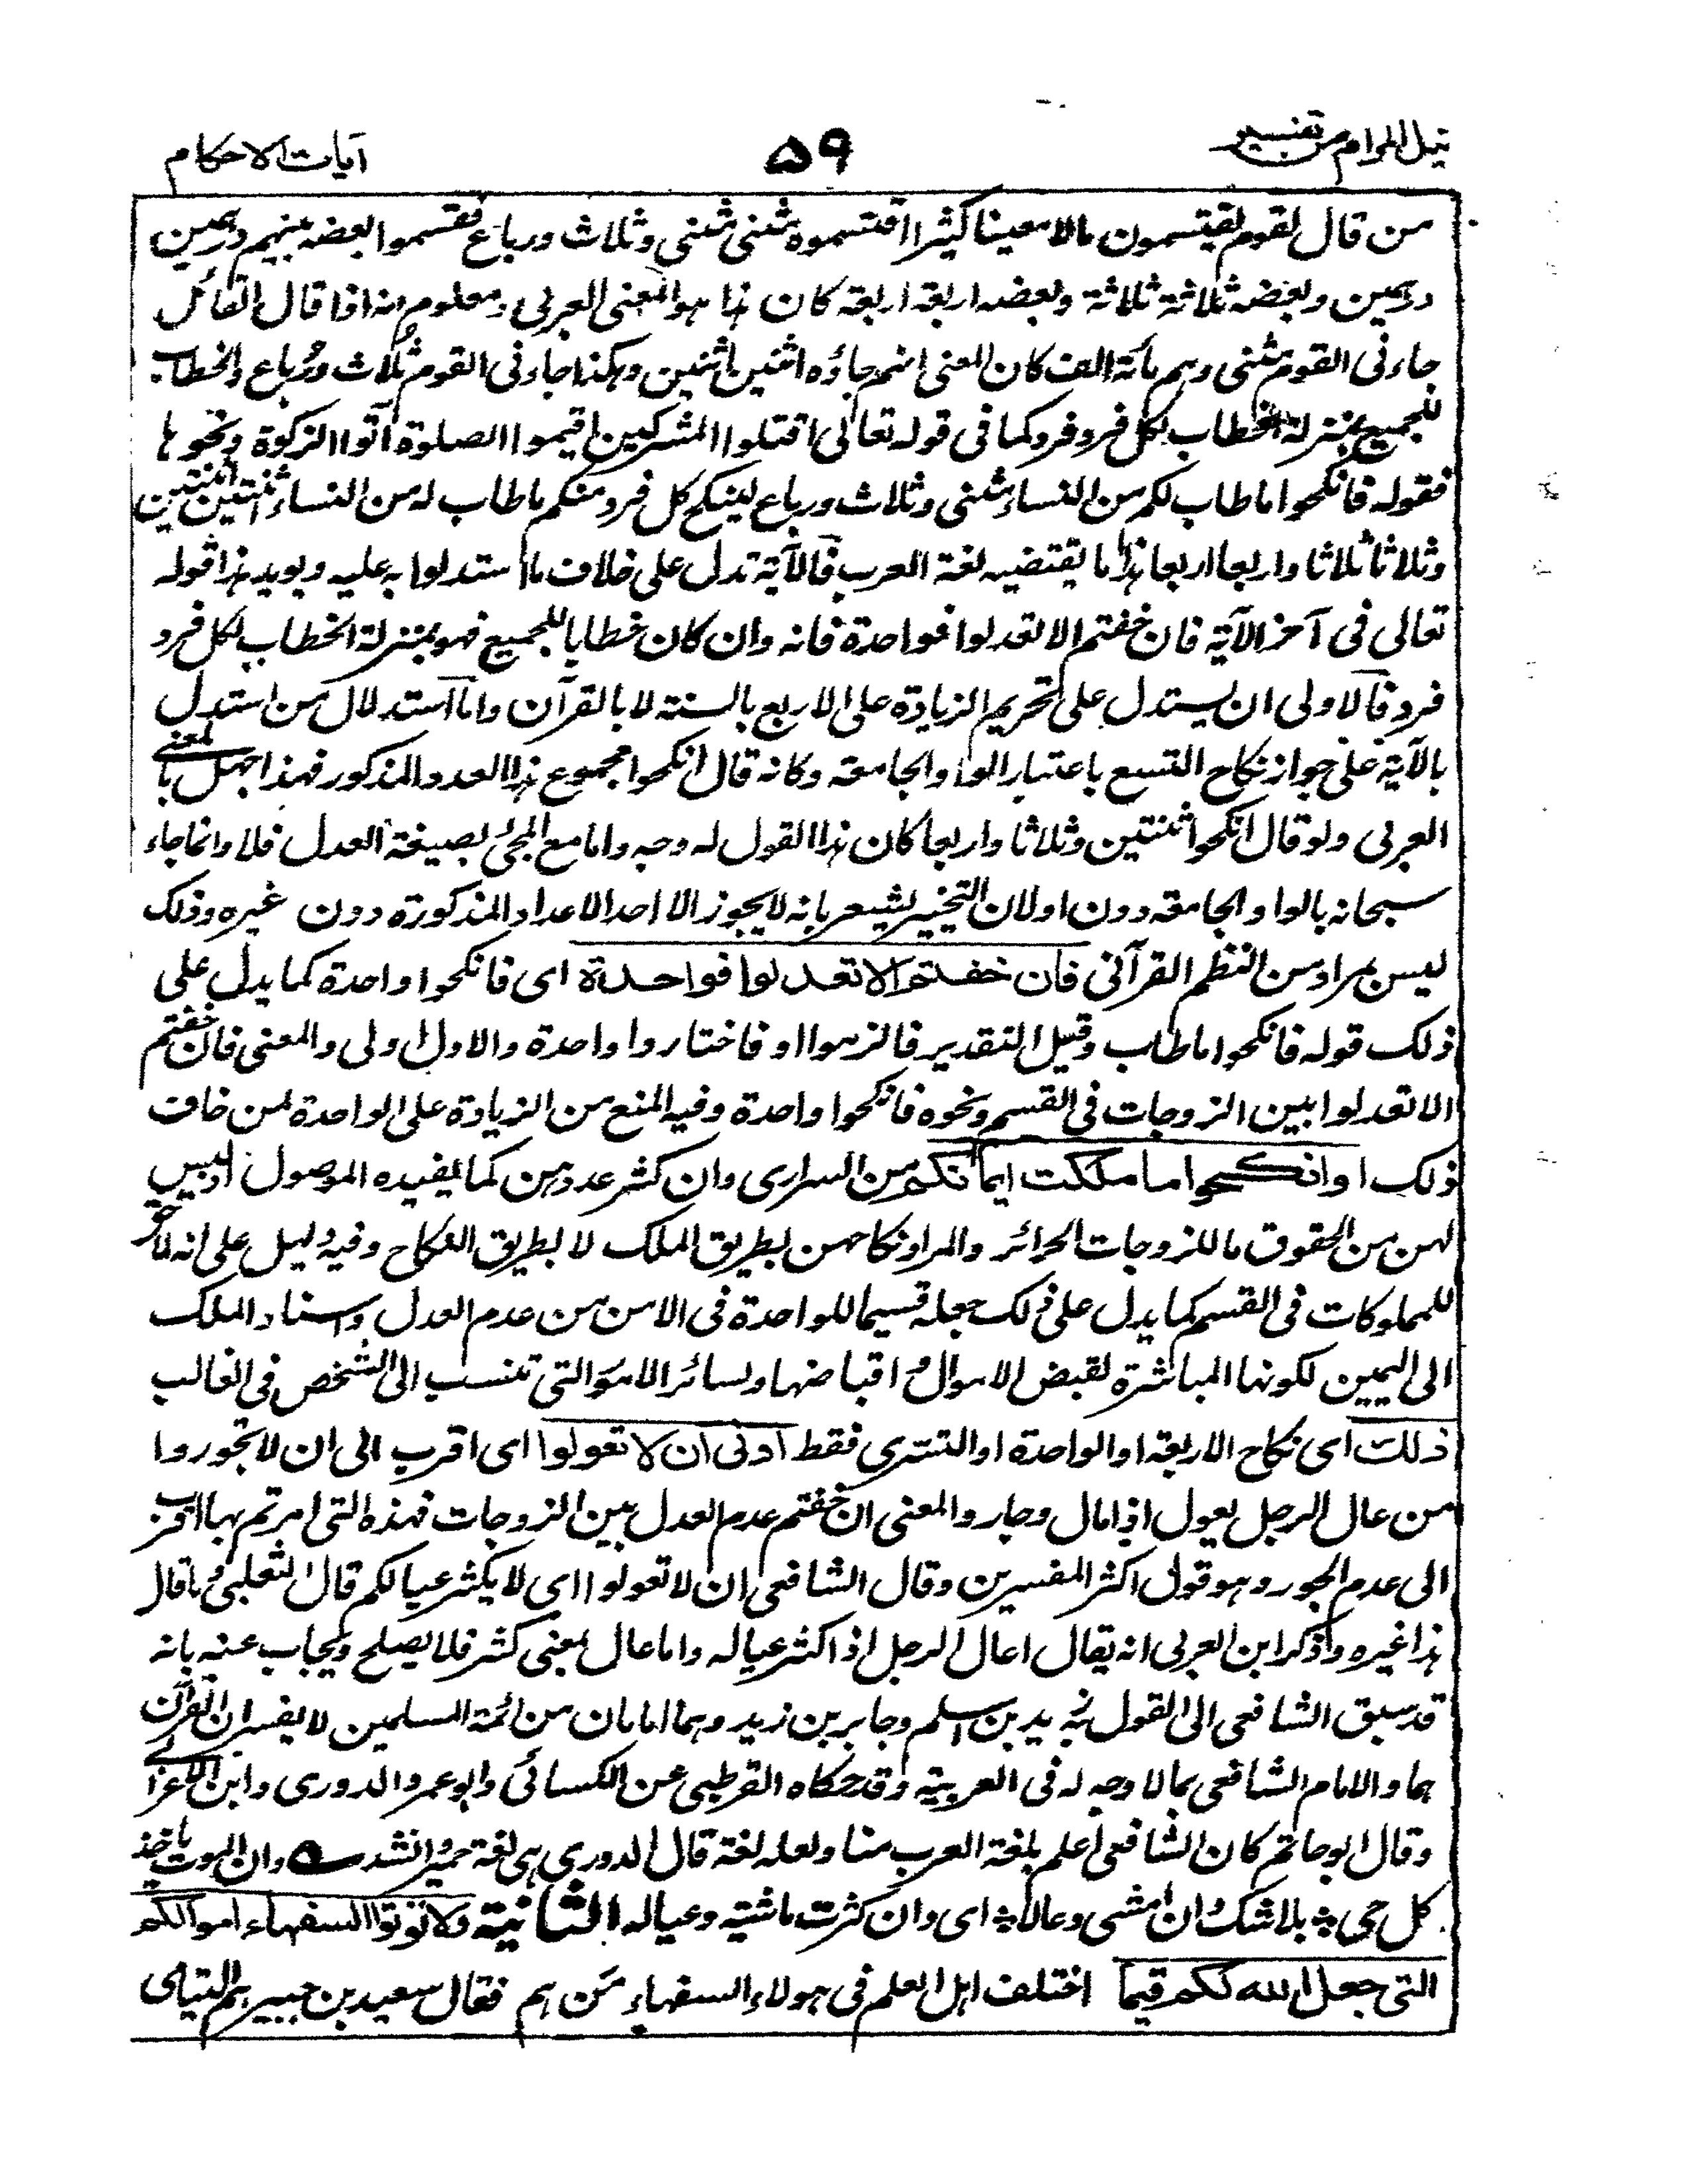 نيل المرام من تفسير
۵۹
آيات الاحكام
من قال لقوم يقتسمون مالا معينا كثيرا اقتسموه مثنى مثنى وثلاث ورباع فقسموا بعضه بينهم درهمين
درهمين وبعضه ثلاثة ثلاثة وبعضه اربعة اربعة كان هذا هو المعنى العربى ومعلوم انه اذا قال القائل
جاءنى القوم مثنى وهم مائة الف كان المعنى انهم جاؤه اثنين اثنين وهكذا جاءنى القوم ثلاث ورباع والخطاب
للجميع بمنزلة الخطاب لكل فرد فرد كما فى قوله تعالى اقتلوا المشركين اقيموا الصلوة آتوا الزكوة ونحوها
فقوله فانكحوا ما طاب لكم من النساء مثنى وثلاث ورباع لينكح كل فرد منكم ما طاب له من النساء ثنتين اثنتين
وثلاثا ثلاثا واربعا اربعا هذا ما يقتضيه لغة العرب فالآية تدل على خلاف ما استدلوا به عليه ويويد هذا قوله
تعالى فى آخر الآية فان خفتم الا تعدلوا فواحدة فانه وان كان خطابا للجميع فهو بمنزلة الخطاب لكل فرد
فرد فالاولى ان يستدل على تحريم الزيادة على الاربع بالسنة لا بالقرآن واما استدلال من استدل
بالآية على جواز نكاح التسع باعتبار الواو الجامعة وكانه قال انكحوا مجموع هذا العدد المذكور فهذا جهل بالمعنى
العربى ولو قال انكحوا ثنتين وثلاثا واربعا كان هذا القول له وجه واما مع المجئ بصيغة العدل فلا وانما جاء
سبحانه بالواو الجامعة دون او لان التخيير يشعر بانه لا يجوز الا احد الاعداد المذكورة دون غيره وذلك
ليس بمراد من النظم القرآنى فان خفتم الا تعدلوا فواحدة اى فانكحوا واحدة كما يدل على
ذلك قوله فانكحوا ما طاب وقيل التقدير فالزموا او فاختاروا واحدة والاول اولى والمعنى فان خفتم
الا تعدلوا بين الزوجات فى القسم ونحوه فانكحوا واحدة وفيه المنع من الزيادة على الواحدة لمن خاف
ذلك او انكحوا ما ملكت ايمانكم من السرارى وان كثر عددهن كما يفيده الموصول اذ ليس
لهن من الحقوق ما للزوجات الحرائر والمراد نكاحهن بطريق الملك لا بطريق النكاح وفيه دليل على انه لا حق
للمملوكات فى القسم كما يدل على ذلك جعله قسيما للواحدة فى الامن من عدم العدل واسناد الملك
الى اليمين لكونها المباشرة لقبض الاموال واقباضها ولسائر الامور التى تنسب الى الشخص فى الغالب
ذلك اى نكاح الاربعة او الواحدة او التسرى فقط ادنى ان لا تعولوا اى اقرب الى ان لا تجوروا
من عال الرجل يعول اذا مال وجار والمعنى ان خفتم عدم العدل بين الزوجات فهذه التى امرتم بها اقرب
الى عدم الجور وهو قول اكثر المفسرين وقال الشافعى ان لا تعولوا اى لا يكثر عيالكم قال الثعلبى وما قال
هذا غيره وذكر ابن العربى انه يقال اعال الرجل اذا كثر عياله واما عال بمعنى كثر فلا يصلح ويجاب عنه بانه
قد سبق الشافعى الى القول به زيد بن اسلم وجابر بن زيد وهما امامان من ائمة المسلمين لا يفسران القرآن
هما والامام الشافعى بما لا وجه له فى العربية وقد حكاه القرطبى عن الكسائى وابو عمر والدورى وابن الاعرابى
وقال ابو حاتم كان الشافعى اعلم بلغة العرب منا ولعله لغة قال الدورى هى لغة حمير وانشد وان الموت ياخذ
كل حى ÷ بلا شك وان امشى وعالا ÷ اى وان كثرت ماشيته وعياله الثانية ولا توتوا السفهاء اموالكم
التى جعل الله لكم قيما اختلف اهل العلم فى هولاء السفهاء من هم فقال سعيد بن جبير هم اليتامى